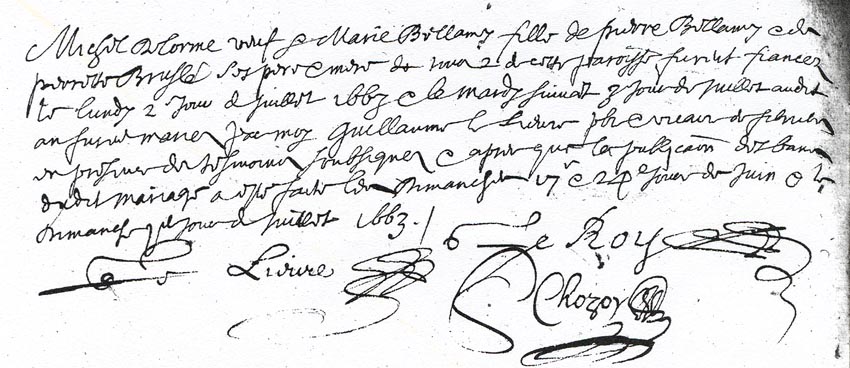 Michel Delorme veuf & Marie Bellamy fille de pierre Bellamy & de
perrete Bruslé ses pere & mere de tous 2 de cette paroisse furent fiancez
le lundy 2e Jour de Juillet 1663 & le mardy suivāt 3e Jour de Juillet audit
an furēt mariez par moy Guillaume le Lieure pbr & vicaire de
en presence des tesmoins soubsignez & apres que la publicaōn des bans
dudit mariage a esté faite les Dimanches 17e & 24e Jours de Juin & le
Dimanche Jour de Juillet 1663./
Le Roy
Lieure
Chozoy